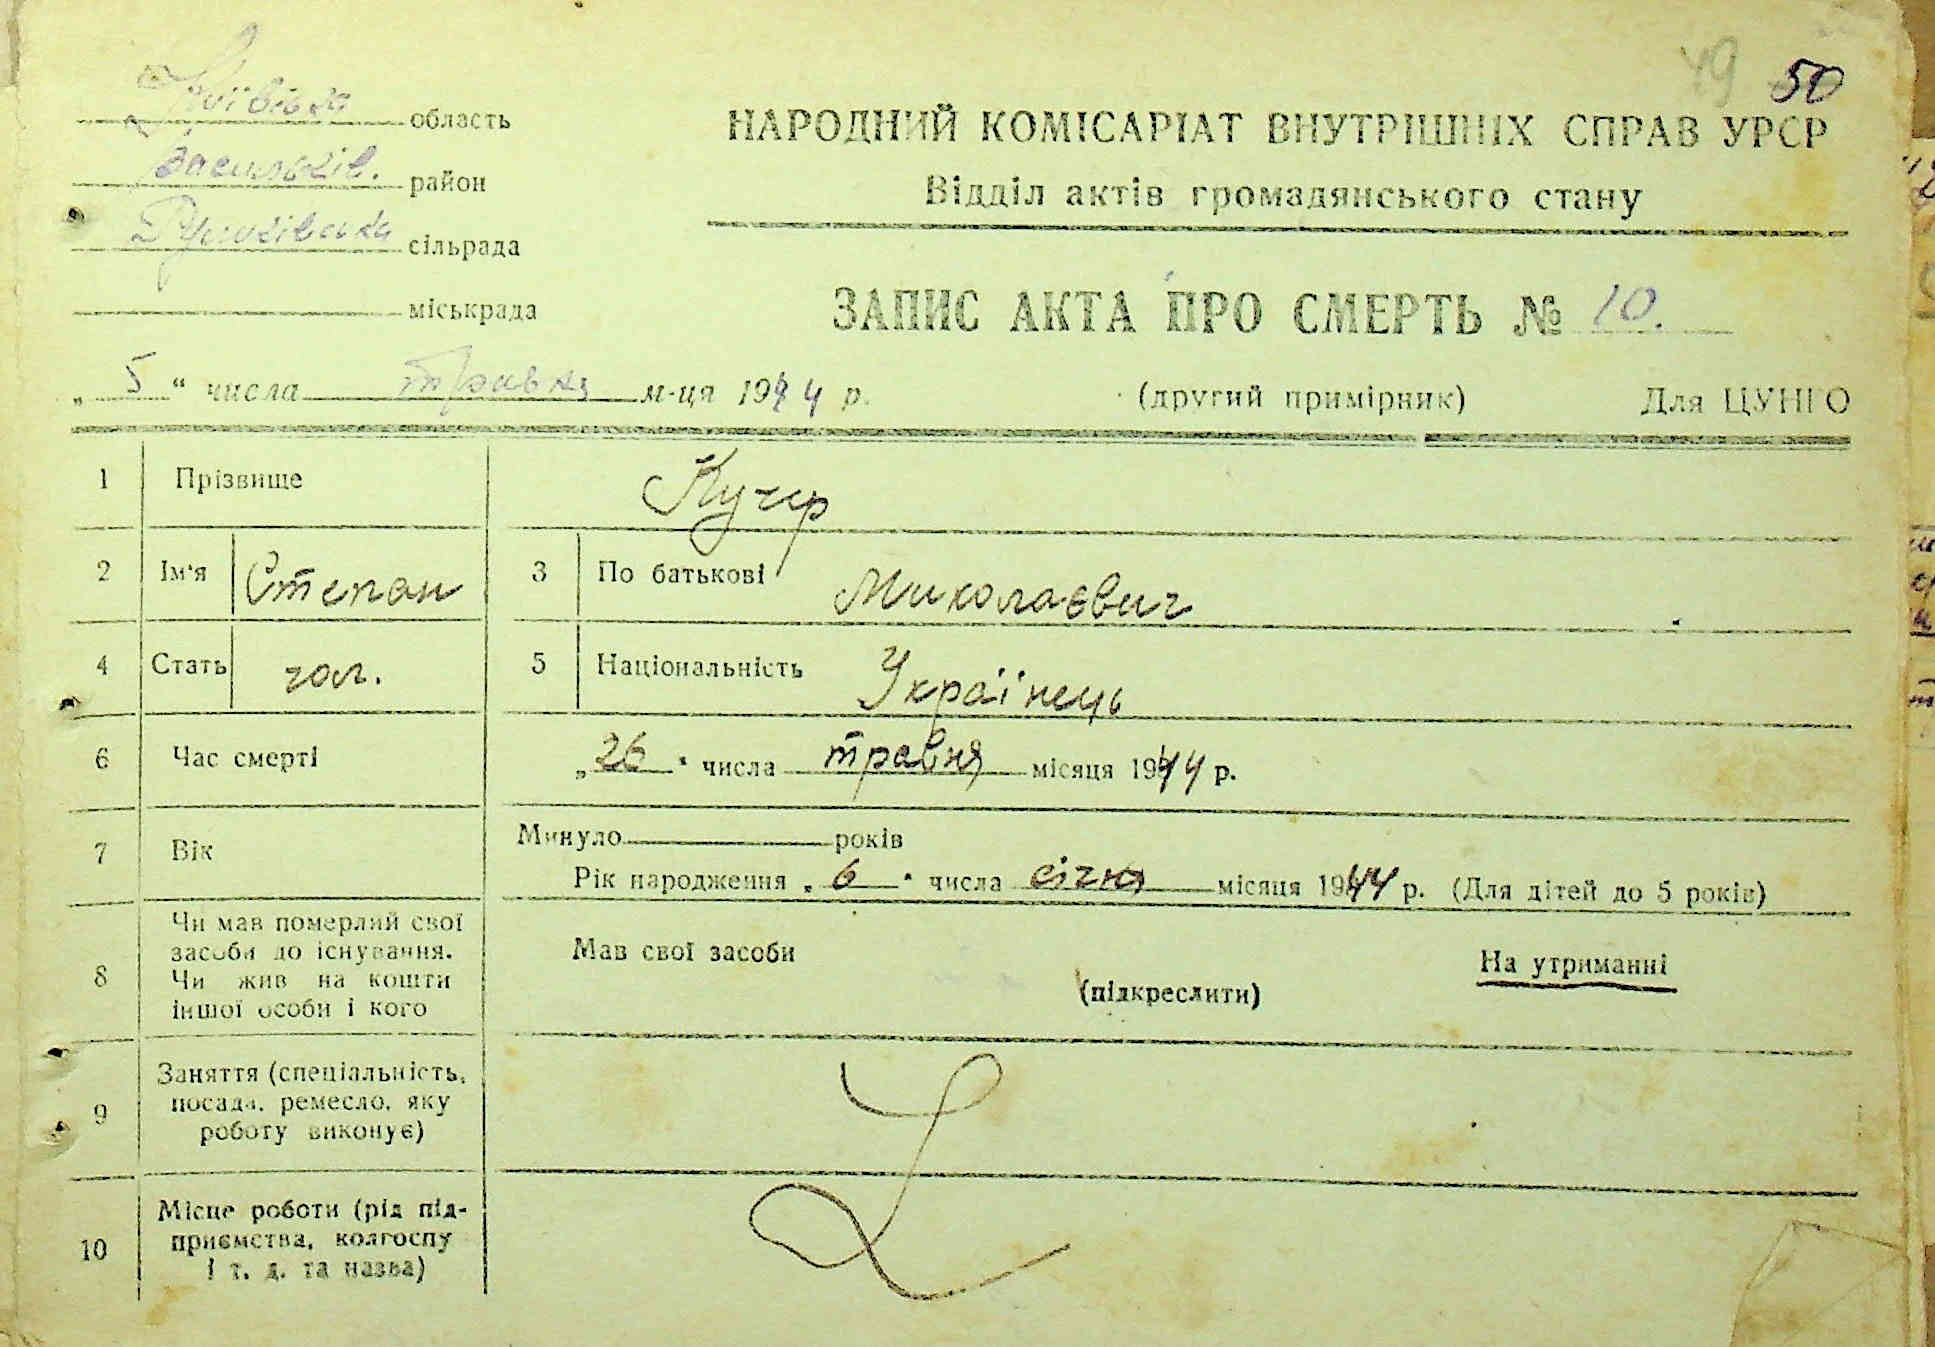 49 50
Київська область
Васильків. район
сільрада
міськрада
НАРОДНИЙ КОМІСАРІАТ ВНУТРІШНІХ СПРАВ УРСР
Відділ актів громадянського стану
ЗАПИС АКТА ПРО СМЕРТЬ № 10.
„5“ числа травня м-ця 1944 р.
(другий примірник) Для ЦУНГО
1 Прізвище Кучер
2 Ім'я Степан 3 По батькові Миколаєвич
4 Стать чол. 5 Національність Українець
6 Час смерті „26“ числа травня місяця 1944 р.
7 Вік Минуло років
Рік народження „6“ числа січня місяця 1944 р. (Для дітей до 5 років)
8 Чи мав померлий свої
засоби до існування.
Чи жив на кошти
іншої особи і кого
Мав свої засоби (підкреслити) На утриманні
9 Заняття (спеціальність,
посада, ремесло, яку
роботу виконує)
10 Місце роботи (рід під-
приємства, колгоспу
і т. д. та назва)